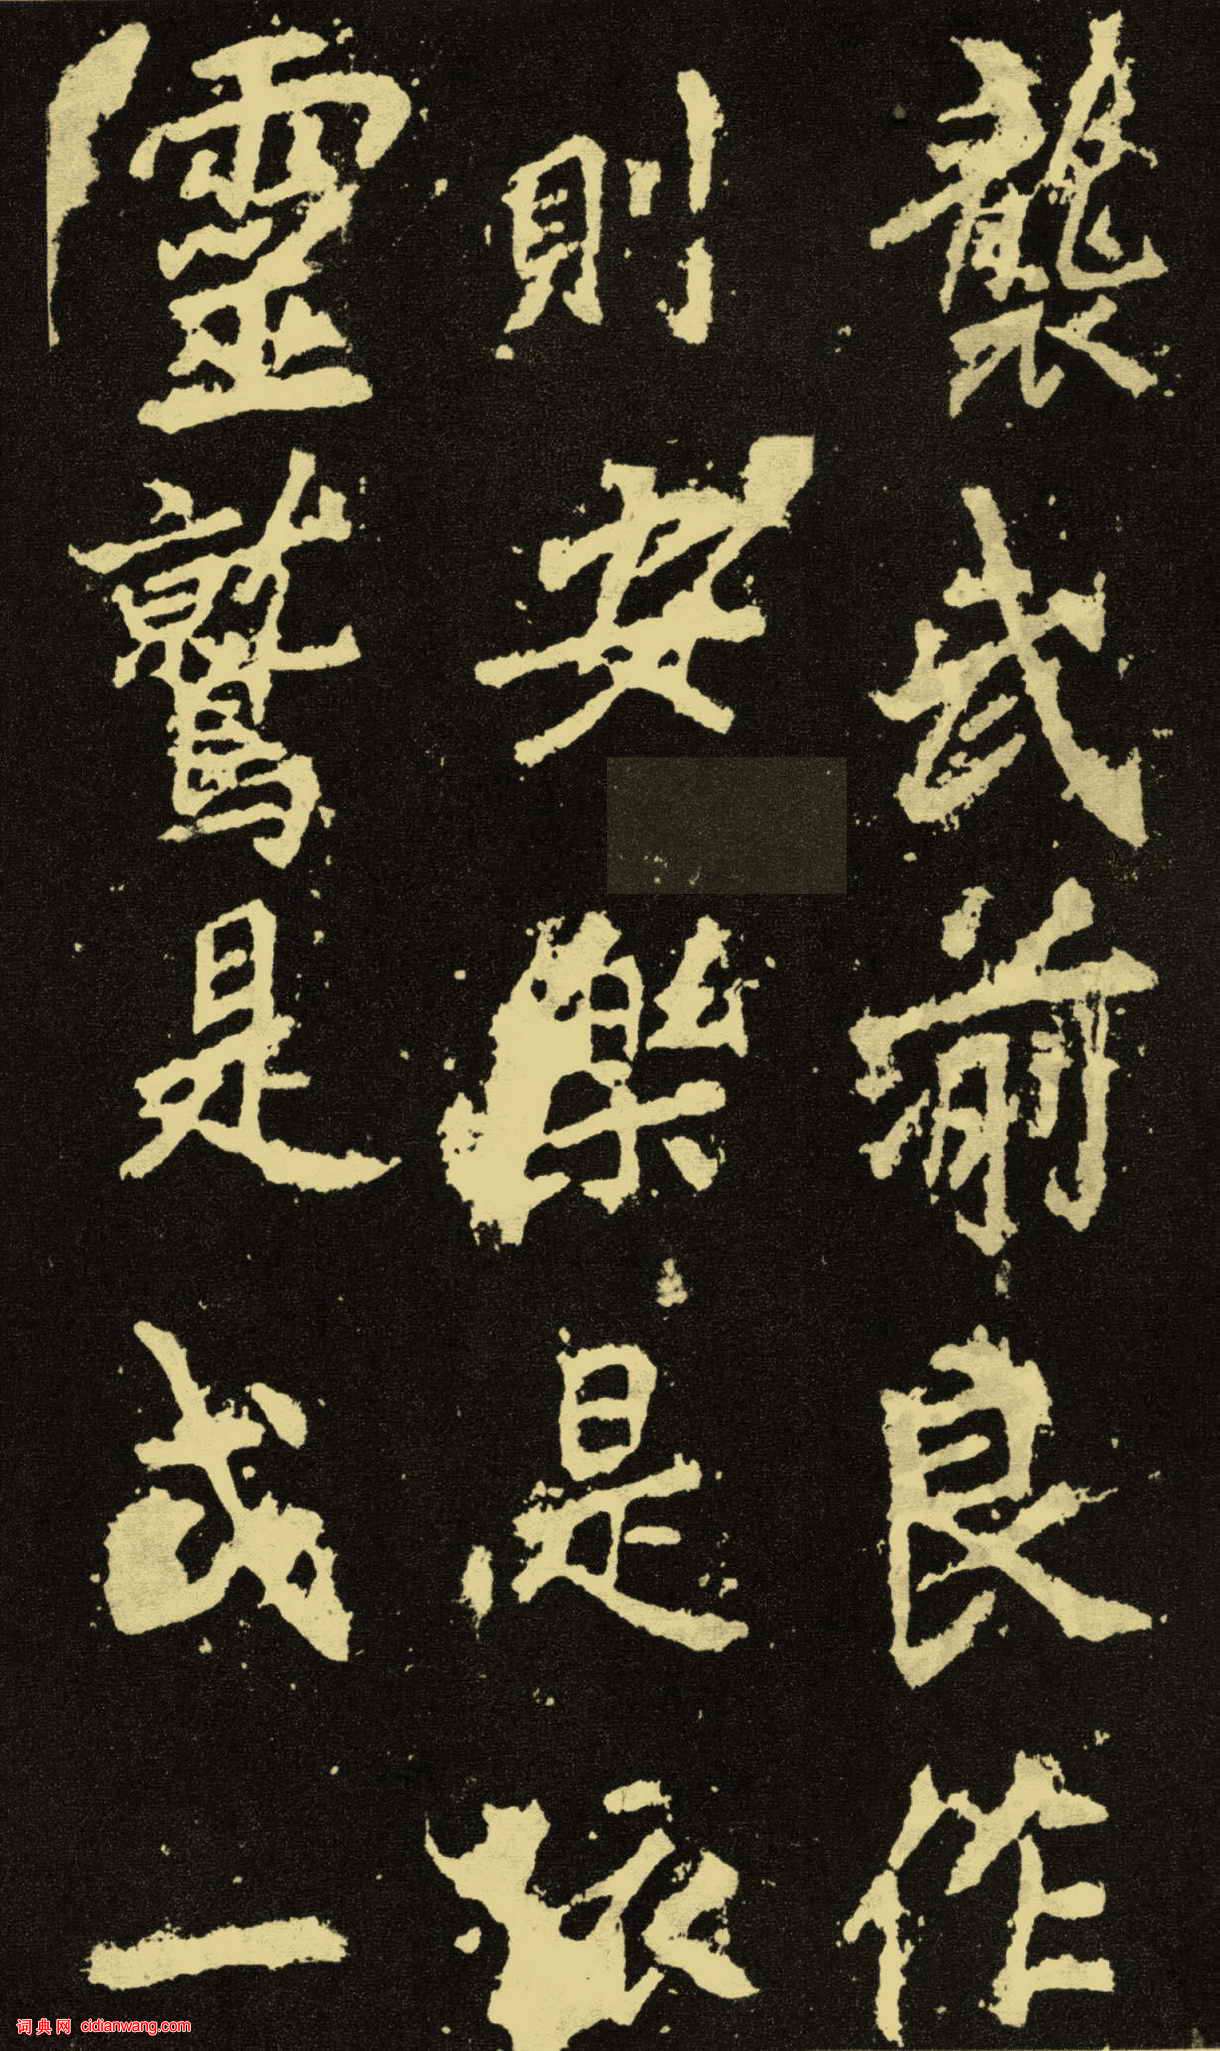 襲武前良作
則安樂是依
靈鷲是式一
词典网 cidianwang.com